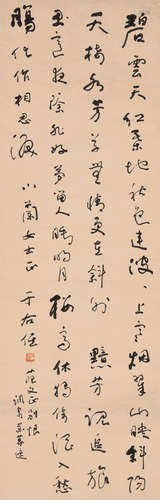 碧雲天紅葉地秋色連波々上寒烟翠山映斜陽
天接水芳草無情更在斜陽外黯芳魂追旅
思夜除非好夢留人睡明月樓高休獨倚酒入愁
腸化作相思淚
小蘭女士正
于右任
范文正別恨
調寄蘇幕遮